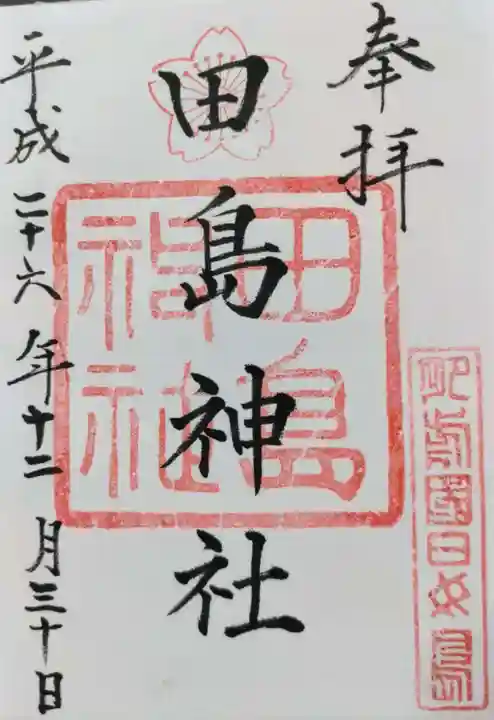 奉拝
田島神社
田島神社
平成二十六年十二月三十日